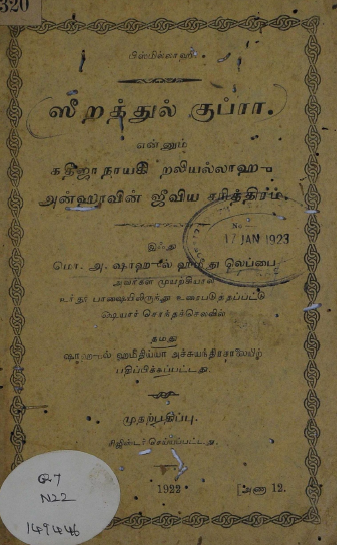 320
பிஸ்மில்லாஹி.
ஸீறத்துல் குப்றா.
என்னும்
கதீஜா நாயகி றலியல்லாஹு
அன்ஹாவின் ஜீவிய சரித்திரம்.
No
17 JAN 1923
இஃது
மொ. அ. ஷாஹுல் ஹமீது லெப்பை
அவர்கள் முயற்சியால்
உர்து பாஷையிலிருந்து உரைபடுத்தப்பட்டு
சொந்தச்செலவில்
தமது
ஷாஹுல் ஹமீதிய்யா அச்சுயந்திரசாலையிற்
பதிப்பிக்கப்பட்டது.
முதற்பதிப்பு.
ரிஜிஸ்டர் செய்யப்பட்டது.
1922 [அணா 12.
Q7
N22
149446